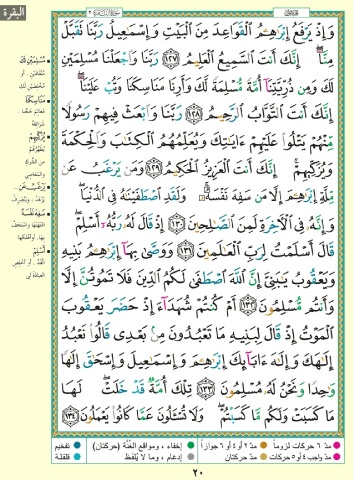 البقرة
وَإِذْ يَرْفَعُ إِبْرَٰهِـۧمُ ٱلْقَوَاعِدَ مِنَ ٱلْبَيْتِ وَإِسْمَٰعِيلُ رَبَّنَا تَقَبَّلْ
مِنَّآ إِنَّكَ أَنتَ ٱلسَّمِيعُ ٱلْعَلِيمُ ١٢٧ رَبَّنَا وَٱجْعَلْنَا مُسْلِمَيْنِ
لَكَ وَمِن ذُرِّيَّتِنَآ أُمَّةً مُّسْلِمَةً لَّكَ وَأَرِنَا مَنَاسِكَنَا وَتُبْ عَلَيْنَآ
إِنَّكَ أَنتَ ٱلتَّوَّابُ ٱلرَّحِيمُ ١٢٨ رَبَّنَا وَٱبْعَثْ فِيهِمْ رَسُولًا
مِّنْهُمْ يَتْلُوا۟ عَلَيْهِمْ ءَايَٰتِكَ وَيُعَلِّمُهُمُ ٱلْكِتَٰبَ وَٱلْحِكْمَةَ
وَيُزَكِّيهِمْ إِنَّكَ أَنتَ ٱلْعَزِيزُ ٱلْحَكِيمُ ١٢٩ وَمَن يَرْغَبُ عَن
مِّلَّةِ إِبْرَٰهِـۧمَ إِلَّا مَن سَفِهَ نَفْسَهُۥ وَلَقَدِ ٱصْطَفَيْنَٰهُ فِى ٱلدُّنْيَا
وَإِنَّهُۥ فِى ٱلْـَٔاخِرَةِ لَمِنَ ٱلصَّٰلِحِينَ ١٣٠ إِذْ قَالَ لَهُۥ رَبُّهُۥٓ أَسْلِمْ
قَالَ أَسْلَمْتُ لِرَبِّ ٱلْعَٰلَمِينَ ١٣١ وَوَصَّىٰ بِهَآ إِبْرَٰهِـۧمُ بَنِيهِ
وَيَعْقُوبُ يَٰبَنِىَّ إِنَّ ٱللَّهَ ٱصْطَفَىٰ لَكُمُ ٱلدِّينَ فَلَا تَمُوتُنَّ إِلَّا
وَأَنتُم مُّسْلِمُونَ ١٣٢ أَمْ كُنتُمْ شُهَدَآءَ إِذْ حَضَرَ يَعْقُوبَ
ٱلْمَوْتُ إِذْ قَالَ لِبَنِيهِ مَا تَعْبُدُونَ مِنۢ بَعْدِى قَالُوا۟ نَعْبُدُ
إِلَٰهَكَ وَإِلَٰهَ ءَابَآئِكَ إِبْرَٰهِـۧمَ وَإِسْمَٰعِيلَ وَإِسْحَٰقَ إِلَٰهًا
وَٰحِدًا وَنَحْنُ لَهُۥ مُسْلِمُونَ ١٣٣ تِلْكَ أُمَّةٌ قَدْ خَلَتْ لَهَا
مَا كَسَبَتْ وَلَكُم مَّا كَسَبْتُمْ وَلَا تُسْـَٔلُونَ عَمَّا كَانُوا۟ يَعْمَلُونَ ١٣٤
مُسْلِمَيْنِ لَكَ
مَنَاسِكَنَا
يُزَكِّيهِمْ
يَرْغَبُ عَن
سَفِهَ نَفْسَهُ
أَسْلِمْ
مدّ ٦ حركات لزوماً
مدّ ٢ أو ٤ أو ٦ جوازاً
إخفاء، ومواقع الغُنَّة (حركتان)
تفخيم
مدّ واجب ٤ أو ٥ حركات
مدّ حركتان
إدغام، وما لا يُلفَظ
قلقلة
٢٠